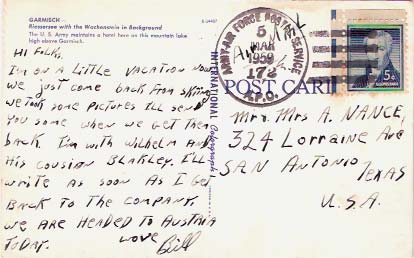 GARMISCH
Riessersee with the Wachenstein in Background
The U. S. Army maintains a hotel here on this mountain lake
high above Garmisch.
HI FOLKS,
I'M ON A LITTLE VACATION NOW
WE JUST COME BACK FROM SKIING
WE TOOK SOME PICTURES ILL SEND
YOU SOME WHEN WE GET THEM
BACK. I'M WITH WILHELM AND
HIS COUSIAN BLAKLEY. I'LL
WRITE AS SOON AS I GET
BACK TO THE COMPANY.
WE ARE HEADED TO AUSTRIA
TODAY.
LOVE Bill
INTERNATIONAL
ARMY-AIR FORCE POSTAL SERVICE
5
MAR
1959
172
A.P.O.
Air Mail
5¢
POST CARD
Mr. Mrs A. NANCE,
324 Lorraine Ave
SAN ANTONIO,
TEXAS
U.S.A.